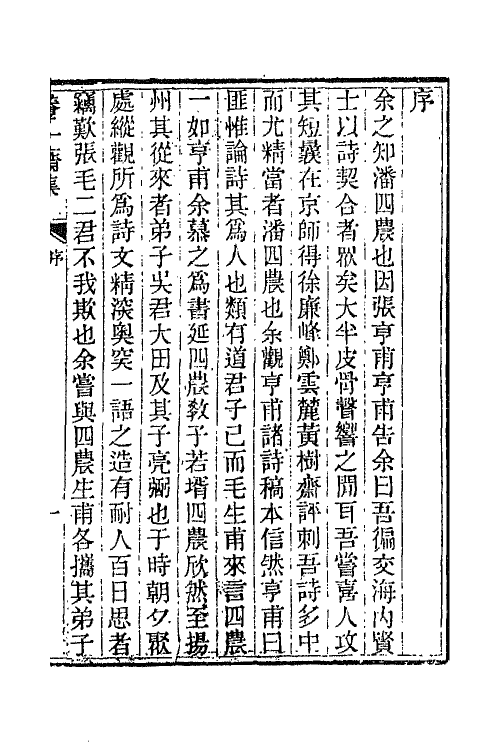 序
余之知潘四農也因張亨甫亨甫告余曰吾徧交海內賢
士以詩契合者眾矣大半皮骨聲響之閒耳吾嘗喜人攻
其短曩在京師得徐廉峰鄭雲麓黃樹齋評刺吾詩多中
而尤精當者潘四農也余觀亨甫諸詩稿本信然亨甫曰
匪惟論詩其爲人也類有道君子已而毛生甫來言四農
一如亨甫余慕之爲書延四農敎子若壻四農欣然至揚
州其從來者弟子吳君大田及其子亮弼也于時朝夕聚
處縱觀所爲詩文精深奧突一語之造有耐人百日思者
竊歎張毛二君不我欺也余嘗與四農生甫各攜其弟子
養一齋集
序
一